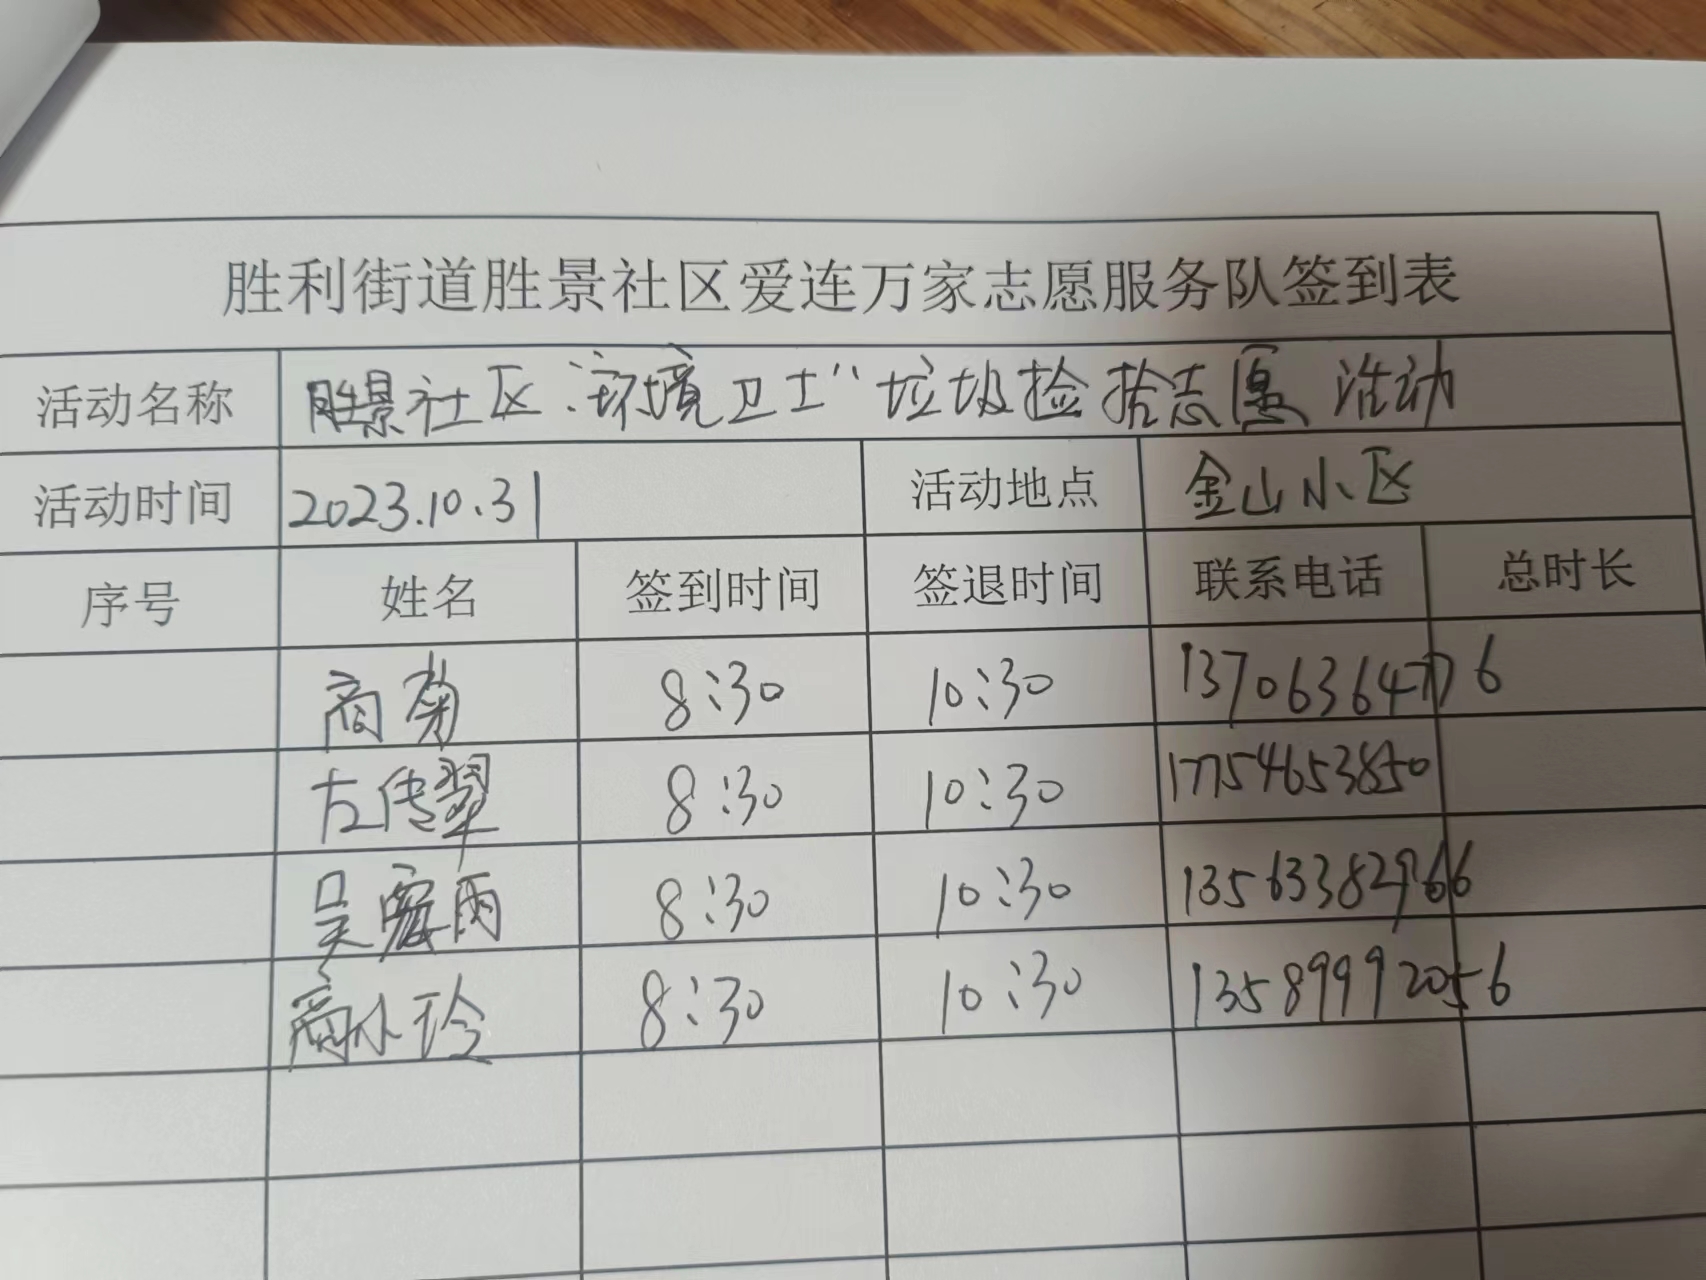 胜利街道胜景社区爱连万家志愿服务队签到表
活动名称 胜景社区“环境卫士”垃圾捡拾志愿活动
活动时间 2023.10.31 活动地点 金山小区
序号 姓名 签到时间 签退时间 联系电话 总时长
商菊 8:30 10:30 13706364776
左传翠 8:30 10:30 17754653850
吴雨 8:30 10:30 13563382966
商小玲 8:30 10:30 13589992056